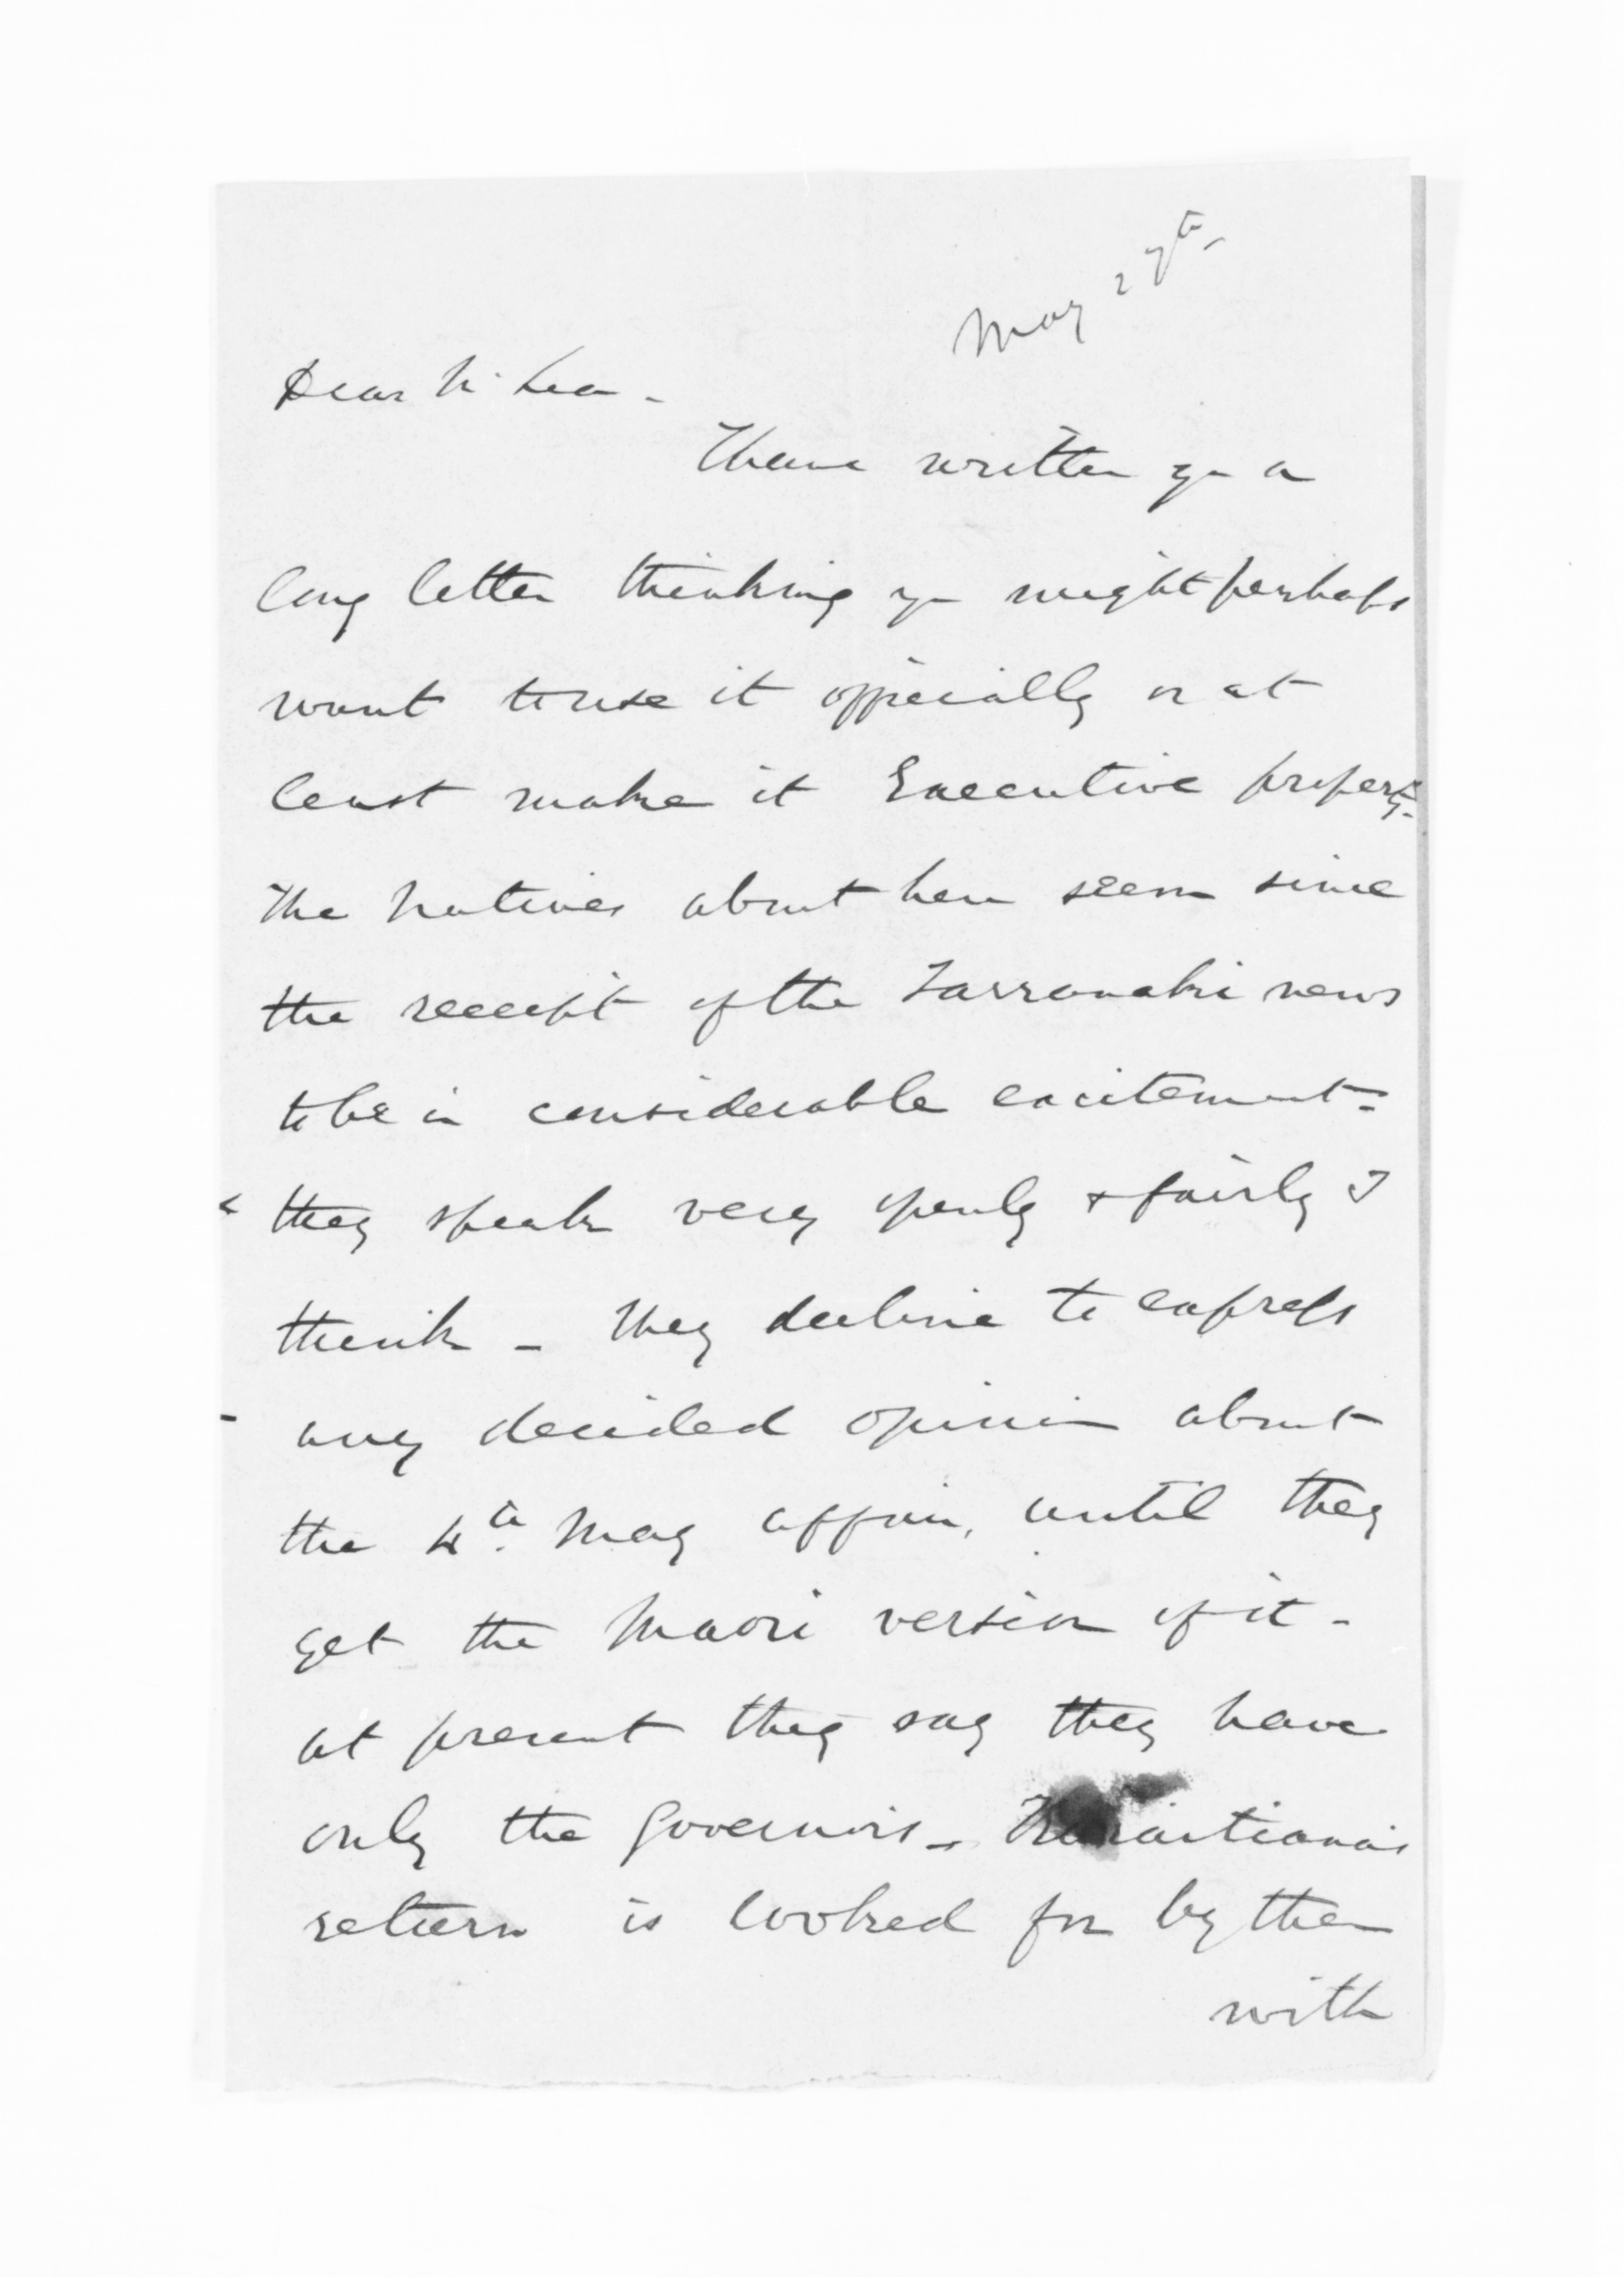 May 27th.
Dear McLean -
I have written you a
long letter thinking you might perhaps
want to use it officially or at
least make it Executive property.
The Natives about here seem since
the receipt of the Tarranaki news
to be in considerable excitement -
& they speak very openly & fairly I
think - They decline to express
- any decided opinion about
the 4th. May affair, until they
get the Maori version of it -
at present they say they have
only the Governors -
return is looked for by them
with